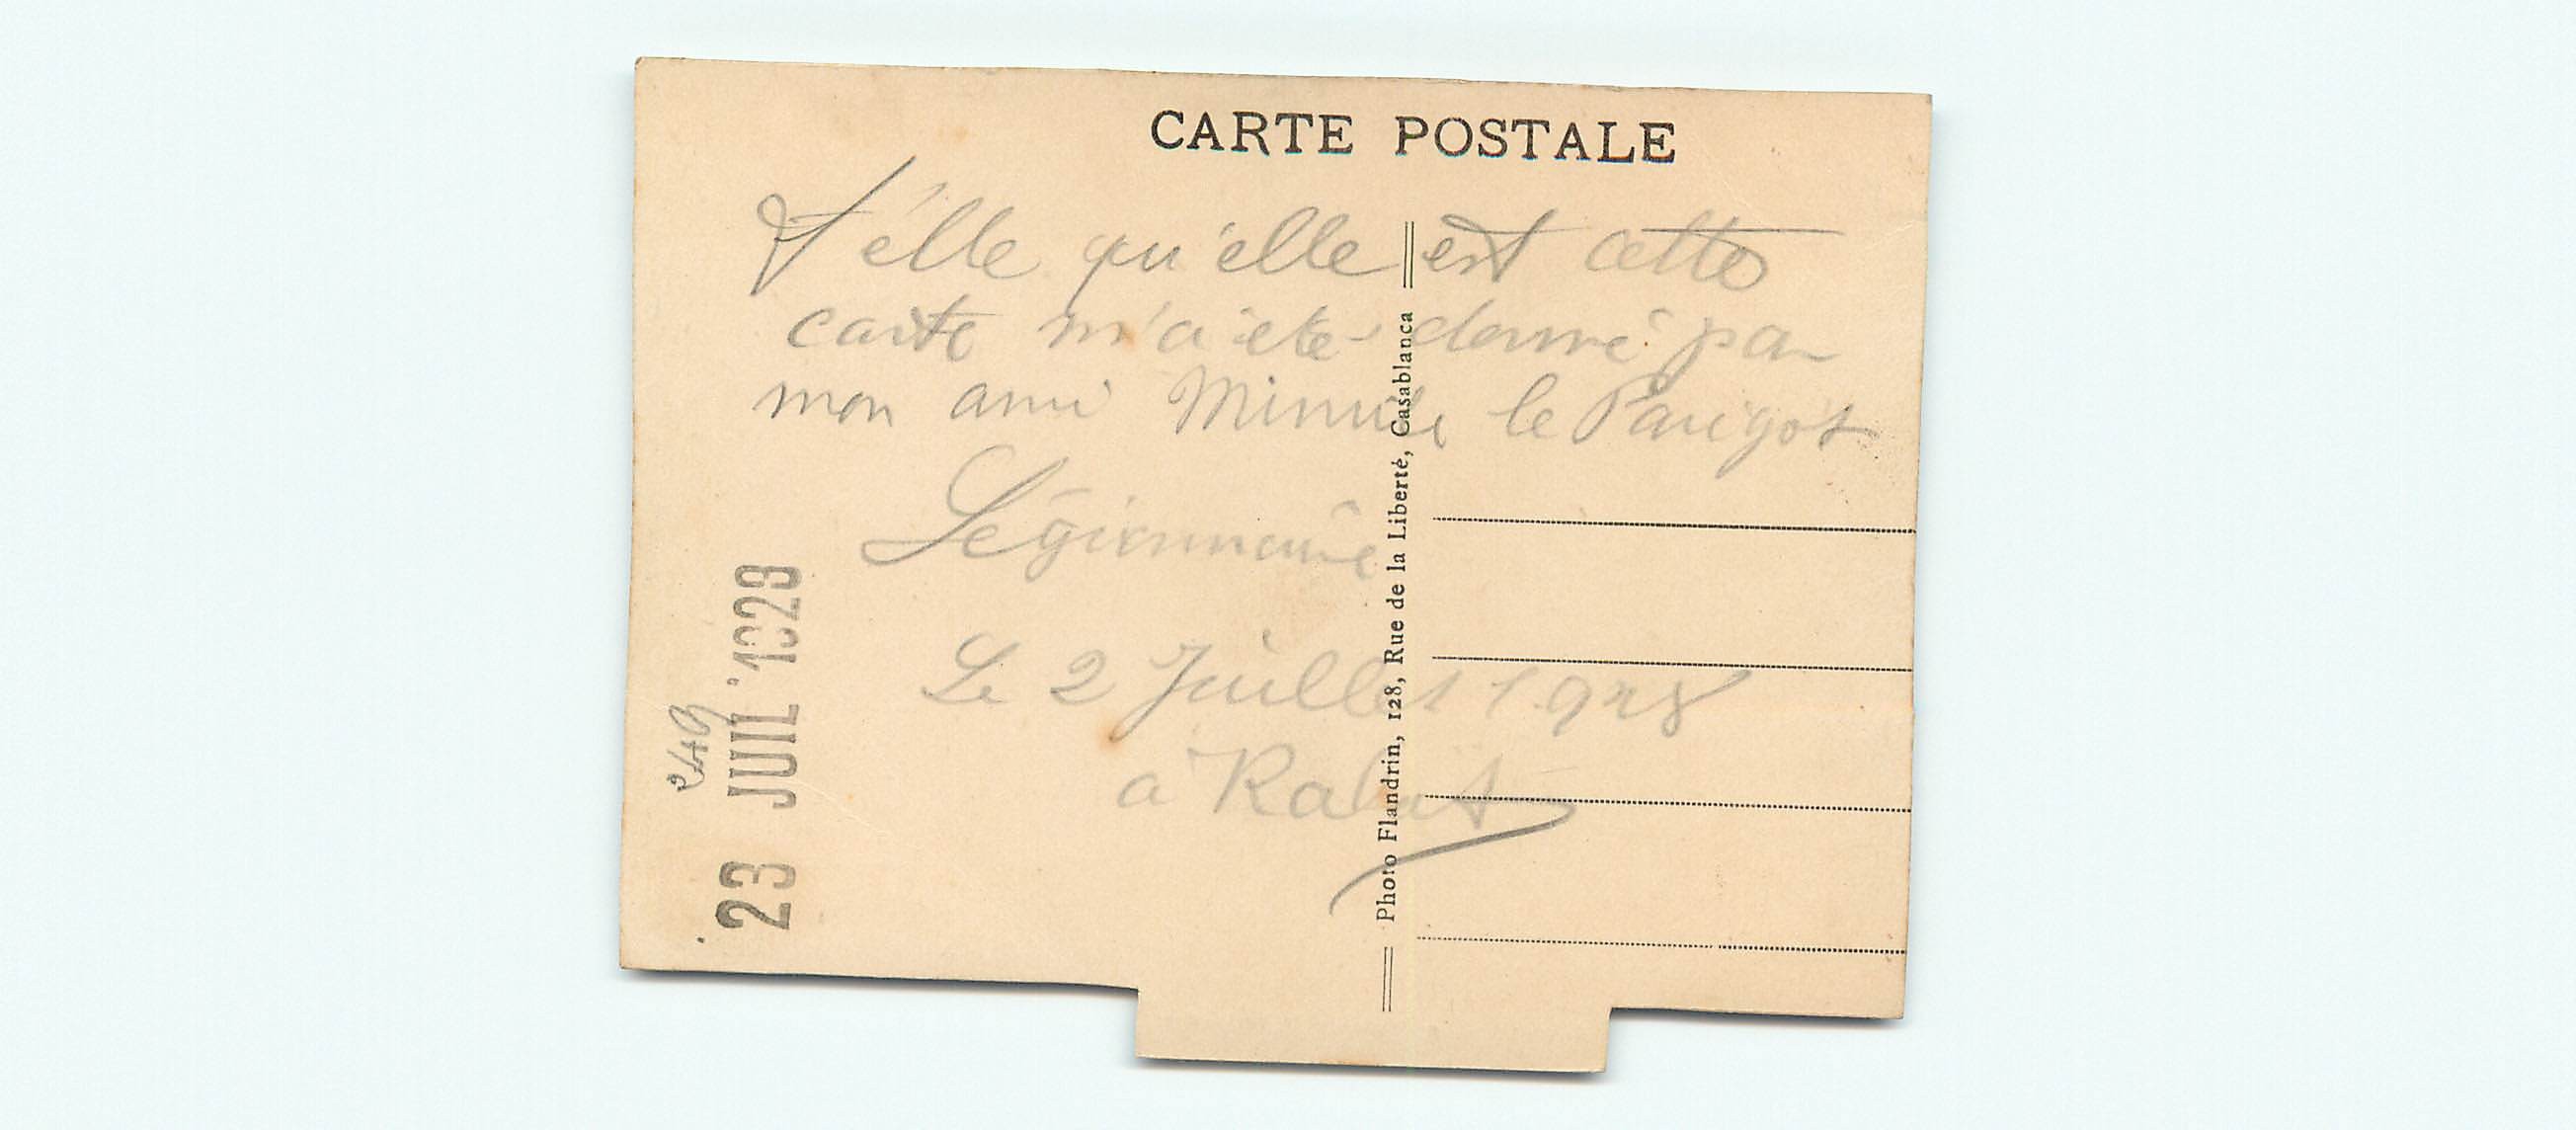 CARTE POSTALE
Telle qu'elle est cette
carte m'a été donné par
mon ami le Parigot
Légionnaire
Le 2 Juillet 1928
à Rabat
Photo Flandrin, 128, Rue de la Liberté, Casablanca
23 JUIL 1928